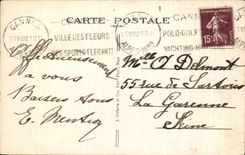 CARTE POSTALE
CANNES
VILLE DES FLEURS
DES SPORTS ELEGANTS
POLO-GOLF
YACHTING
15
Affectueusement
à vous
Baisers à tous
Mlle A. Delmont
55 rue de Sartoris
La Garenne
Seine